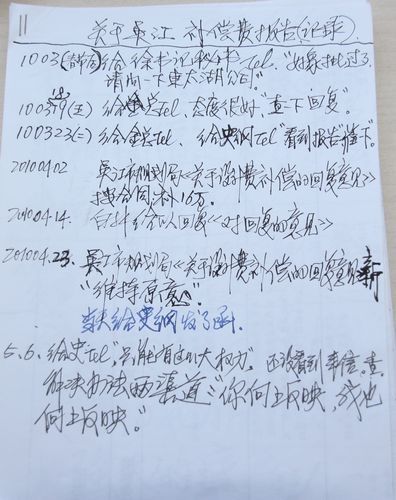 11
关于吴江补偿费报告(记录)
1003 给徐书记秘书Tel,"好象批过了,
请问一下东太湖公司"。
100319(五)给金总Tel,态度很好,"查一下回复"。
100323(二)给金总Tel、给史纲Tel"看到报告
20100402 吴江市规划局《关于设计费补偿的回复意见》
按合同,补16万。
20100414. 给以回复《对回复的意见》
201004.23. 吴江市规划局《关于设计费补偿的回复意见》新
"维持原意"。
给史纲发了函.
5.6. 给史Tel"只能有这么大权力。还没看到来信.查.
解决办法两渠道:"你向上反映,我也
向上反映。"